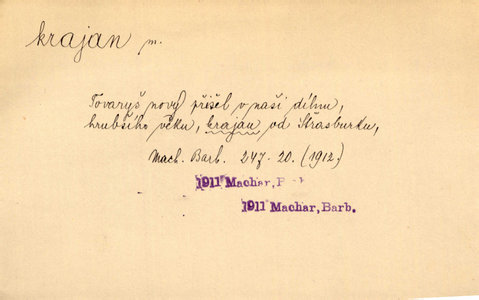 krajan m.
Tovaryš nový přišel v naši dílnu,
hrubšího věku, krajan od Štrasburku,
Mach. Barb. 247. 20. (1912)
1911 Machar,
1911 Machar, Barb.